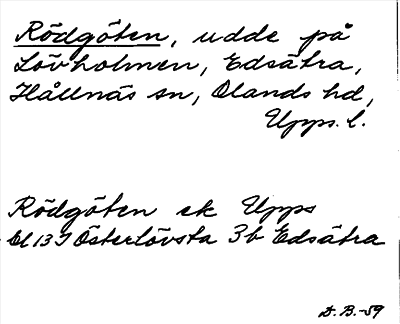 Rödgöten, udde på
Lövholmen, Edsätra,
Hållnäs sn, Olands hd,
Upps. l.
Rödgöten ek Upps
Bl 13 I Österlövsta 3b Edsätra
D. B. -59